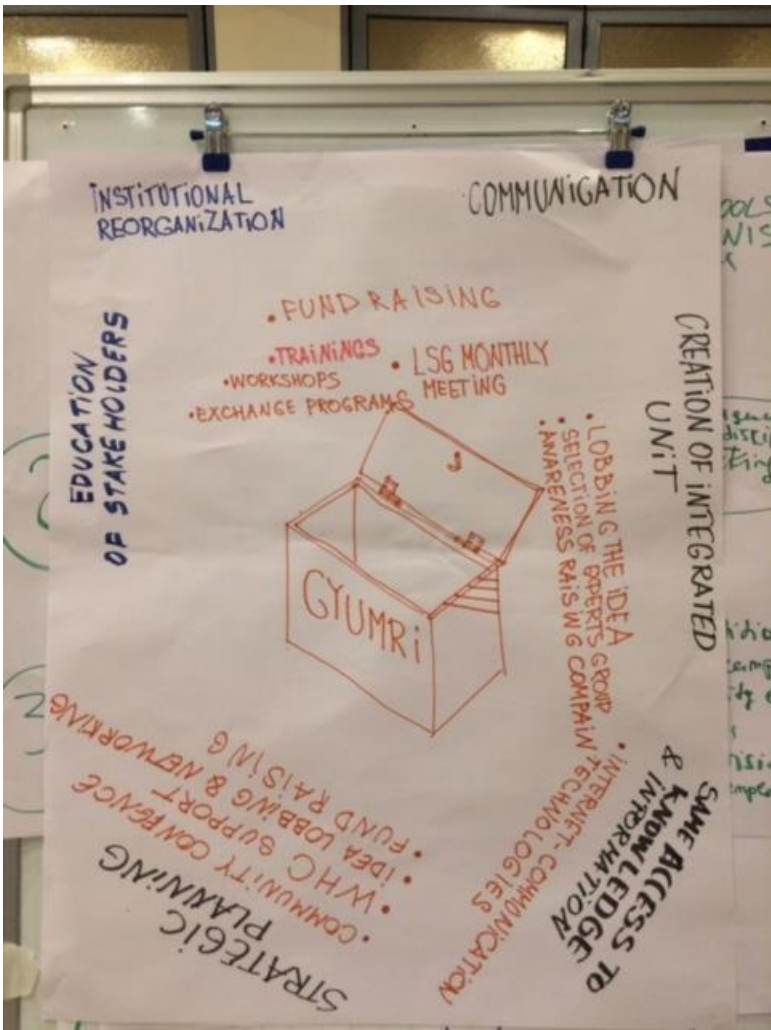 INSTITUTIONAL
REORGANIZATION
COMMUNIGATION
• FUND RAISING
• TRAININGS
• WORKSHOPS
• EXCHANGE PROGRAMS
• LSG MONTHLY
MEETING
EDUCATION
OF STAKEHOLDERS
CREATION OF INTEGRATED
UNIT
• LOBBING THE IDEA
• SELECTION OF EXPERTS GROUP
• AWARENESS RAISING COMPAIN
GYUMRI
• INTERNET-COMMUNICATION
TECHNOLOGIES
SAME ACCESS TO
KNOWLEDGE
& INFORMATION
STRATEGIC
PLANNING
• COMMUNITY CONFGENCE
• WHC SUPPORT
• IDEA LOBBING & NETWORKING
• FUND RAISING